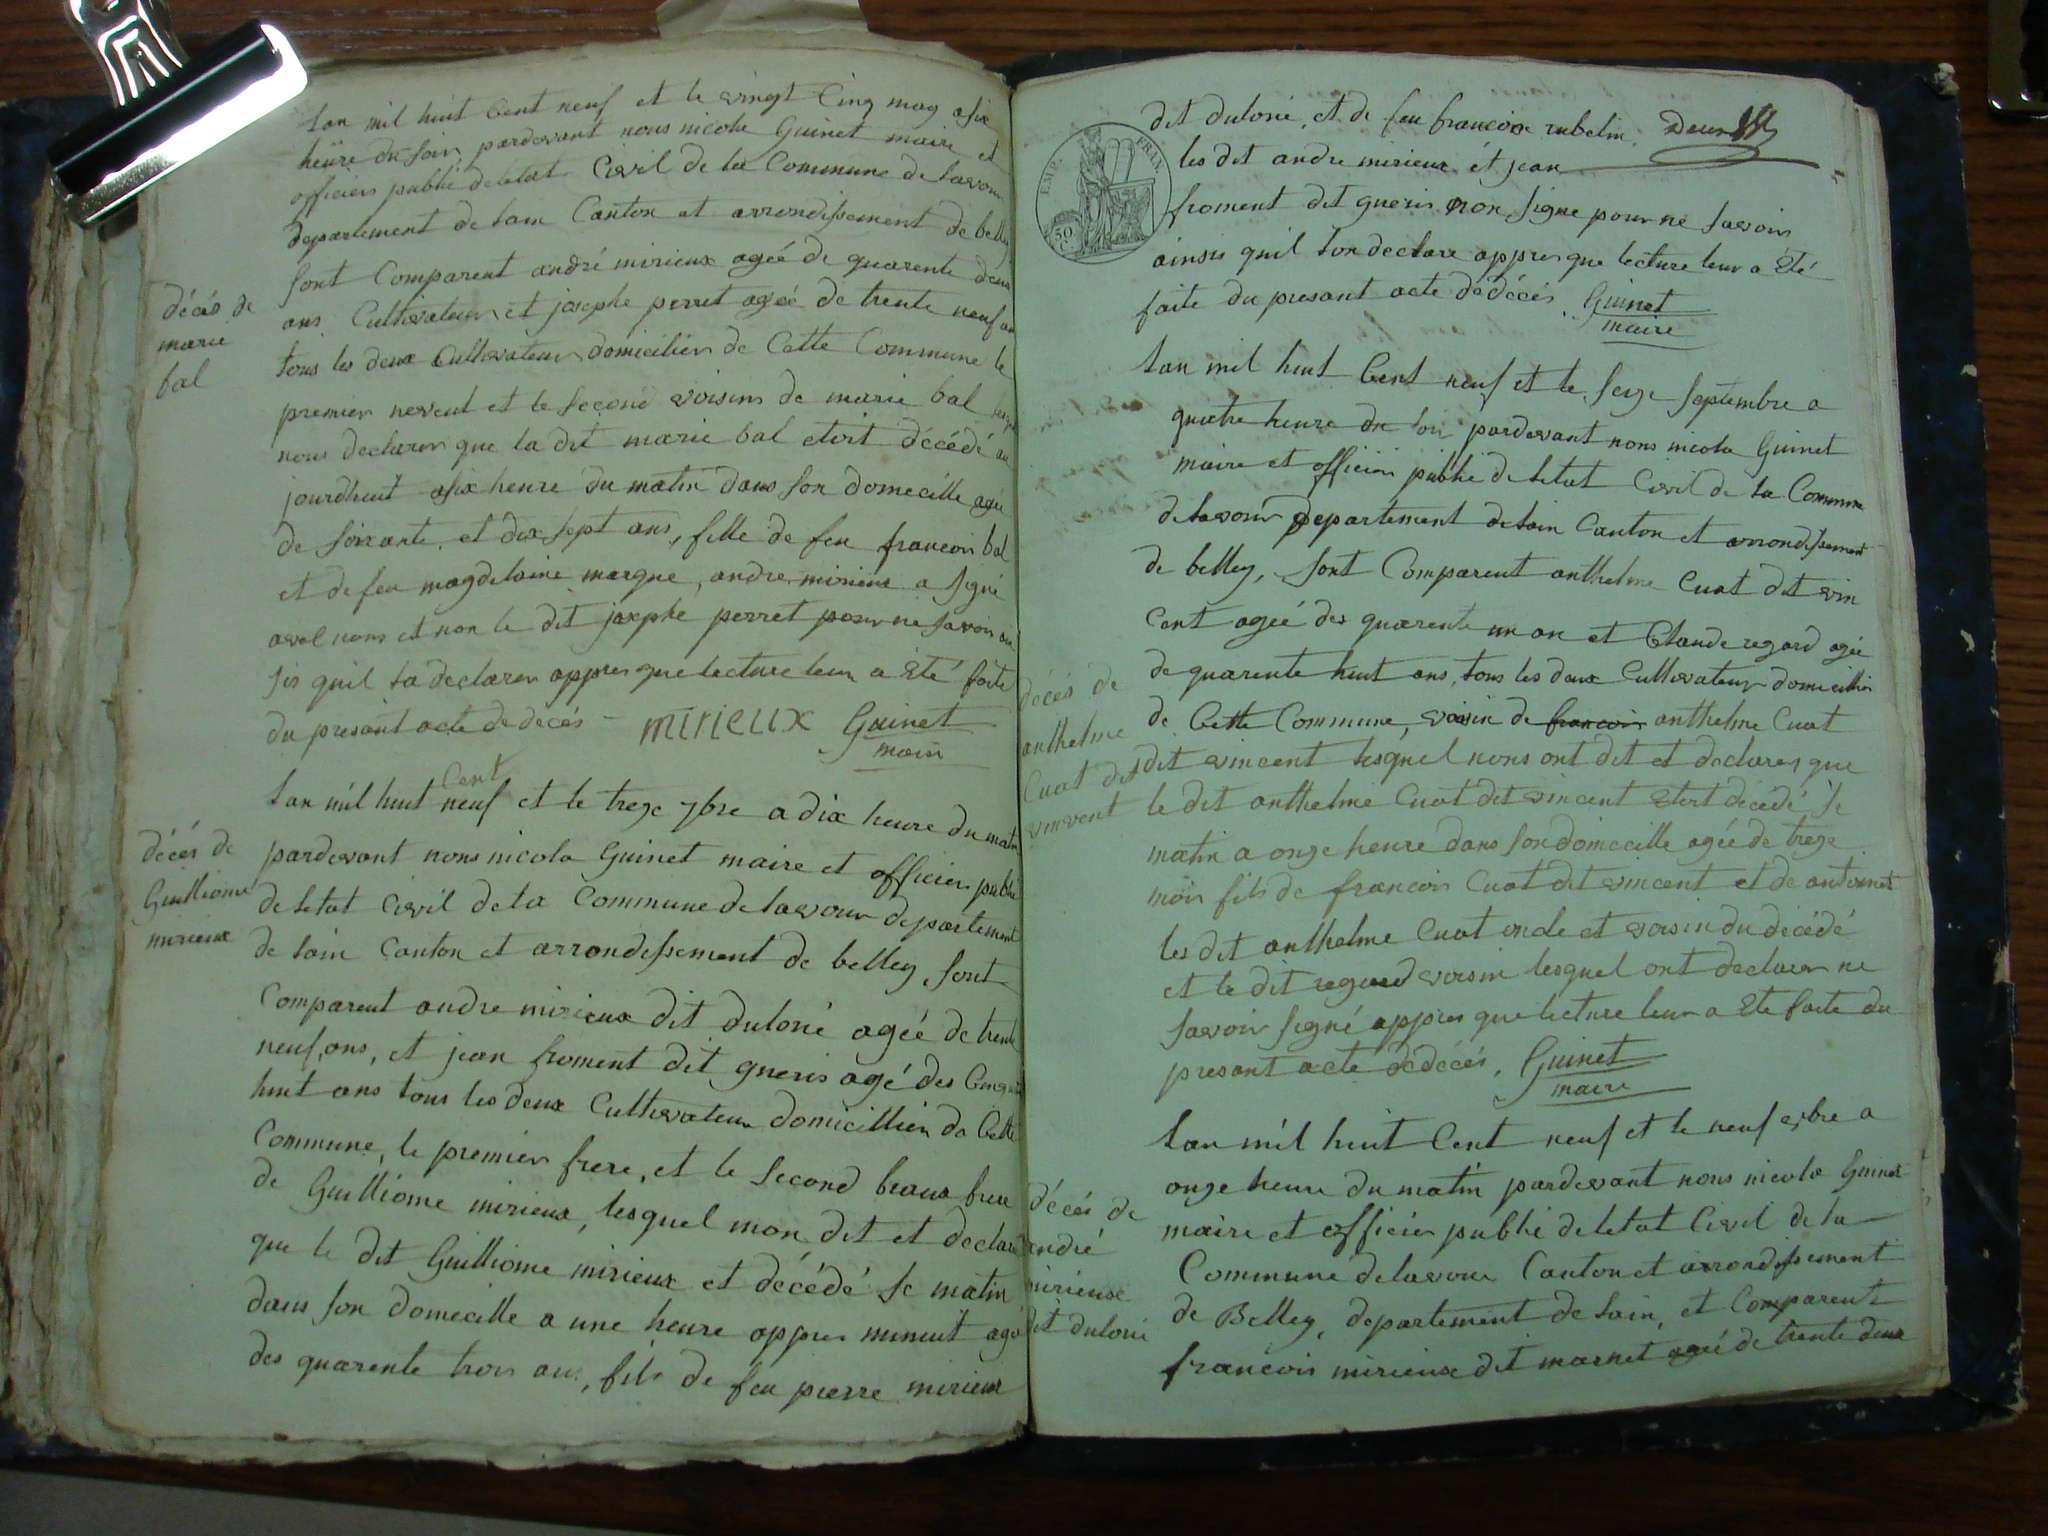 lan mil huit Cent neuf et le vingt Cinq may a six
heure du soir pardevant nous nicola Guinet maire et
officier publié deletat Civil de la Commune de lavour
departement de lain Canton et arrondissement de belley
sont Comparent andré mirieux agée de quarente deux
ans Cultivateur et josephe perret agéé de trente neuf an
tous les deux Cultivateur domicilier de Cette Commune le
premier neveut et le second voisins de marie bal
nous declarer que la dit marie bal etoit décédé au
jourdhuit a six heure du matin dans son domecille agée
de soixante et dix sept ans, fille de feu francois bal
et de feu magdelaine marque, andre mirieux a signé
avel nous et non le dit josephe perret pour ne savoir ain
sis quil la declarer appres que lecture leur a Eté faite
du presant acte de décés - mirieux Guinet
maire
décés de
marie
bal
lan mil huit Cent neuf et le treze 7bre a dix heure du matin
pardevant nous nicola Guinet maire et officier publié
de letat Civil de la Commune de lavour departement
de lain Canton et arrondissement de belley, sont
Comparent andre mirieux dit duloné agéé de trente
neuf ans, et jean froment dit gueris agé des Cinquante
huit ans tous les deux Cultivateur domicillier da Cette
Commune, le premier frere, et le second beaux frere
de Guilliome mirieux, lesquel mon dit et declaré
que le dit Guilliome mirieux et décédé se matin
dans son domecille a une heure appres minuit agé
des quarente trois ans, fils de feu pierre mirieux
décés de
Guilliome
mirieux
dit duloné, et de feu francoix rubelin. Deux
les dit andre mirieux et jean
froment dit gueris non signe pour ne savoir
ainsis quil lon declare appres que lecture leur a Eté
faite du presant acte de décés. Guinet
maire
EMP. FRAN.
50
lan mil huit Cent neuf et le seize septembre a
quatre heure du soir pardevant nous nicola Guinet
maire et officier publié de letat Civil de la Commune
de lavour departement de lain Canton et arrondissement
de belley, sont Comparent anthelme Cuat dit vin
cent agéé des quarente un an et Claude regard agée
de quarente huit ans, tous les deux Cultivateur domicillier
de Cette Commune, voisin de francois anthelme Cuat
dit vincent lesquel nous ont dit et declarer que
le dit anthelme Cuat dit vincent etoit décédé se
matin a onze heure dans son domecille agéé de treze
mois fils de francois Cuat dit vincent et de antoinet
les dit anthelme Cuat oncle et voisin du décédé
et le dit regard voisin lesquel ont declarer ne
savoir signé appres que lecture leur a Eté faite du
presant acte de décés. Guinet
maire
décés de
anthelme
Cuat dit
vinvent
lan mil huit Cent neuf et le neuf a
onze heure du matin pardevant nous nicola Guinet
maire et officier publié de letat Civil de la
Commune de lavour Canton et arrondissement
de Belley, departement de lain, et Comparent
francois mirieux dit marnet agéé de trente deux
décés de
andré
mirieuse
dit duloné